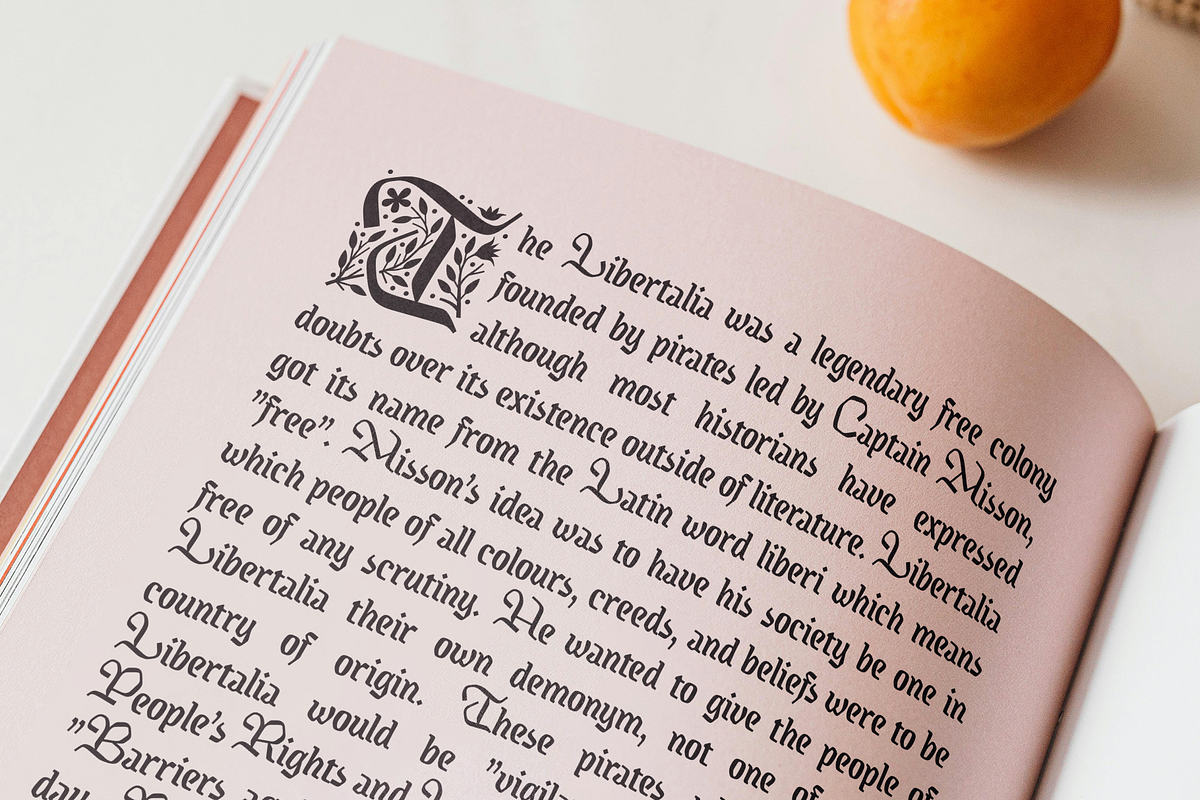 The Libertalia was a legendary free colony
founded by pirates led by Captain Misson,
although most historians have expressed
doubts over its existence outside of literature. Libertalia
got its name from the Latin word liberi which means
”free”. Misson's idea was to have his society be one in
which people of all colours, creeds, and beliefs were to be
free of any scrutiny. He wanted to give the people of
Libertalia their own demonym, not one of
country of origin. These pirates
Libertalia would be
People's Rights and
”Barriers